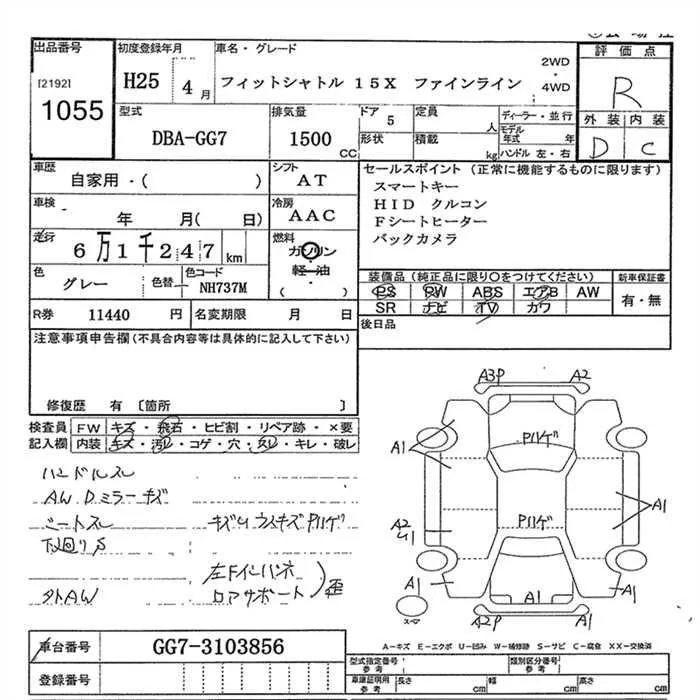 出品番号 初度登録年月 車名・グレード 評価点
[2192] 1055 H25 4月 フィットシャトル 15X ファインライン 2WD ・ 4WD R
型式 排気量 ドア 定員 ディーラー・並行 外装 内装
DBA-GG7 1500 CC 5 人 モデル年式 年 D C
形状 積載 kg ハンドル 左・右
車歴 シフト セールスポイント (正常に機能するものに限ります)
自家用・( ) AT スマートキー
車検 冷房 HID クルコン
年 月( 日) AAC Fシートヒーター
走行 燃料 バックカメラ
6万1千247km ガソリン・軽油・( )
色 色替 色コード 装備品 (純正品に限り○をつけてください) 新車保証書
グレー NH737M PS PW ABS エアB AW 有・無
SR ナビ TV カワ
R券 11440 円 名変期限 月 日 後日品
注意事項申告欄 (不具合内容等は具体的に記入して下さい)
修復歴 有 〔箇所 〕
検査員 FW キズ・飛石・ヒビ割・リペア跡・×要
記入欄 内装 キズ・汚レ・コゲ・穴・スレ・キレ・破レ
ハンドルスレ
AW Dミラーキズ
シートスレ キズU ウスキズ Pハゲ
下廻りS
左Fインパネ
外AW ロアサポート 歪
A3P A2
A1 Pハゲ
Pハゲ A1
A2 U1
A1 A1 A1
A2P
スペア
車台番号 GG7-3103856
A-キズ E-エクボ U-凹み W-補修跡 S-サビ C-腐食 XX-交換済
登録番号 型式指定番号 参考 類別区分番号 参考
車庫証明用 参考 長さ cm 幅 cm 高さ cm